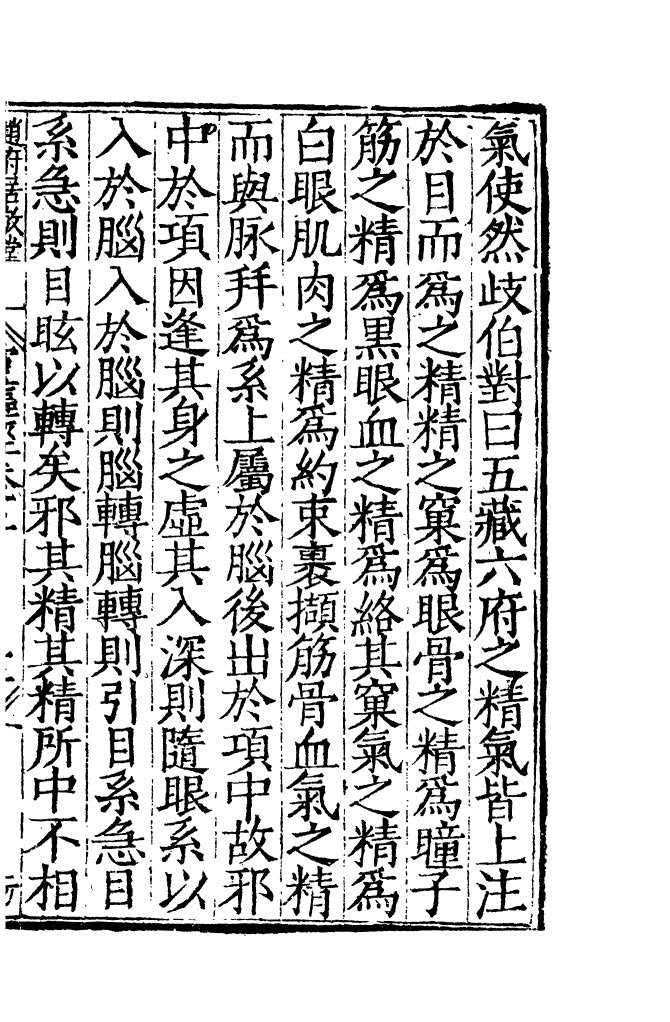 氣使然歧伯對曰五藏六府之精氣皆上注
於目而爲之精精之窠爲眼骨之精爲瞳子
筋之精爲黒眼血之精爲絡其窠氣之精爲
白眼肌肉之精爲約束裹擷筋骨血氣之精
而與脉拜爲系上屬於腦後出於項中故邪
中於項因逢其身之虛其入深則隨眼系以
入於腦入於腦則腦轉腦轉則引目系急目
系急則目眩以轉矣邪其精其精所中不相
趙府居敬堂